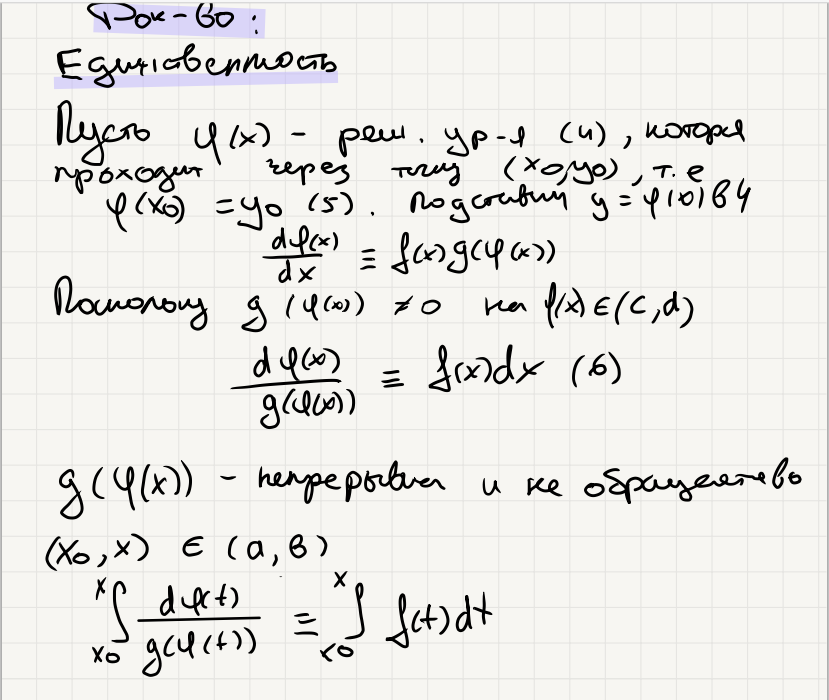 Док-во:
Единственность
Пусть φ(x) - реш. ур-я (4), которая
проходит через точку (x0,y0), т.е
φ(x0) = y0 (5). Подставим y = φ(x) в 4
dφ(x)/dx ≡ f(x)g(φ(x))
Поскольку g(φ(x)) ≠ 0 на φ(x) ∈ (c,d)
dφ(x)/g(φ(x)) ≡ f(x)dx (6)
g(φ(x)) - непрерывна и не обращается в 0
(x0,x) ∈ (a,b)
∫_{x0}^{x} dφ(t)/g(φ(t)) ≡ ∫_{x0}^{x} f(t)dt